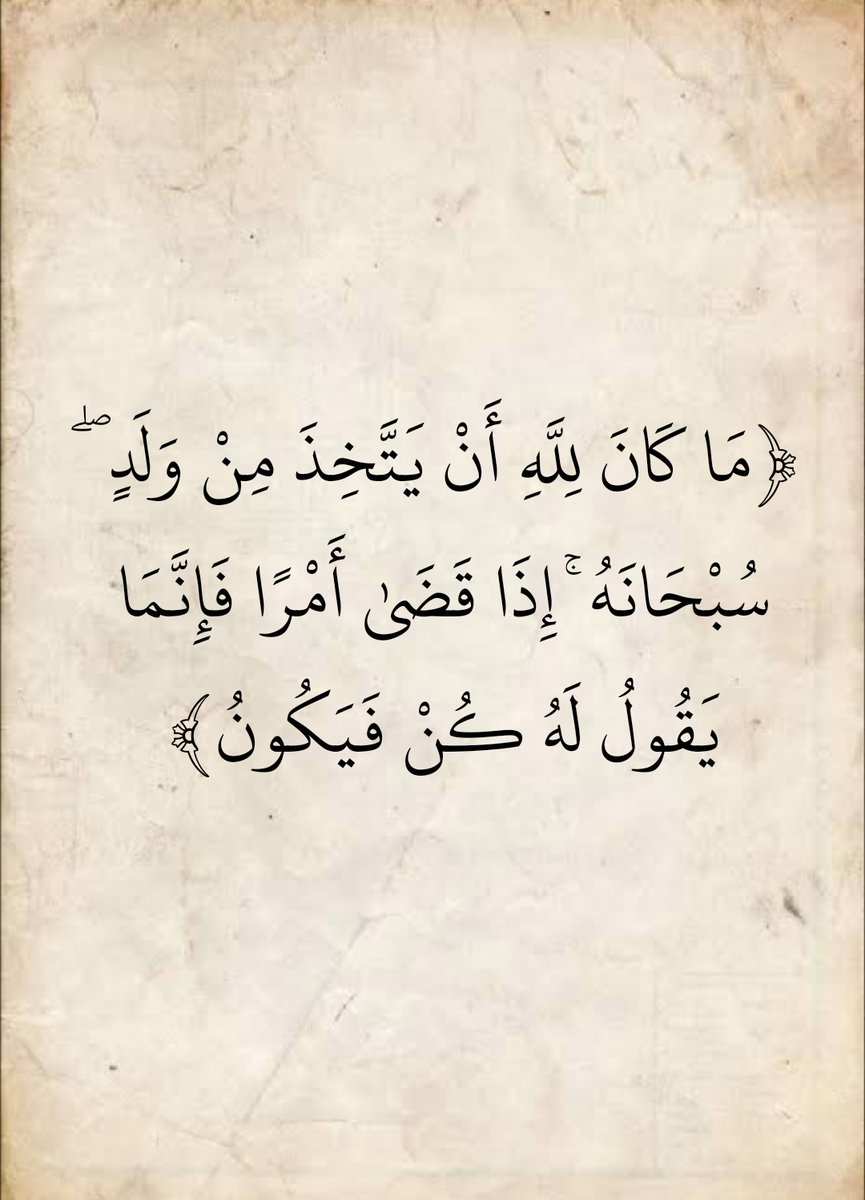 ﴿مَا كَانَ لِلَّهِ أَنْ يَتَّخِذَ مِنْ وَلَدٍ ۖ
سُبْحَانَهُ ۚ إِذَا قَضَىٰ أَمْرًا فَإِنَّمَا
يَقُولُ لَهُ كُنْ فَيَكُونُ﴾